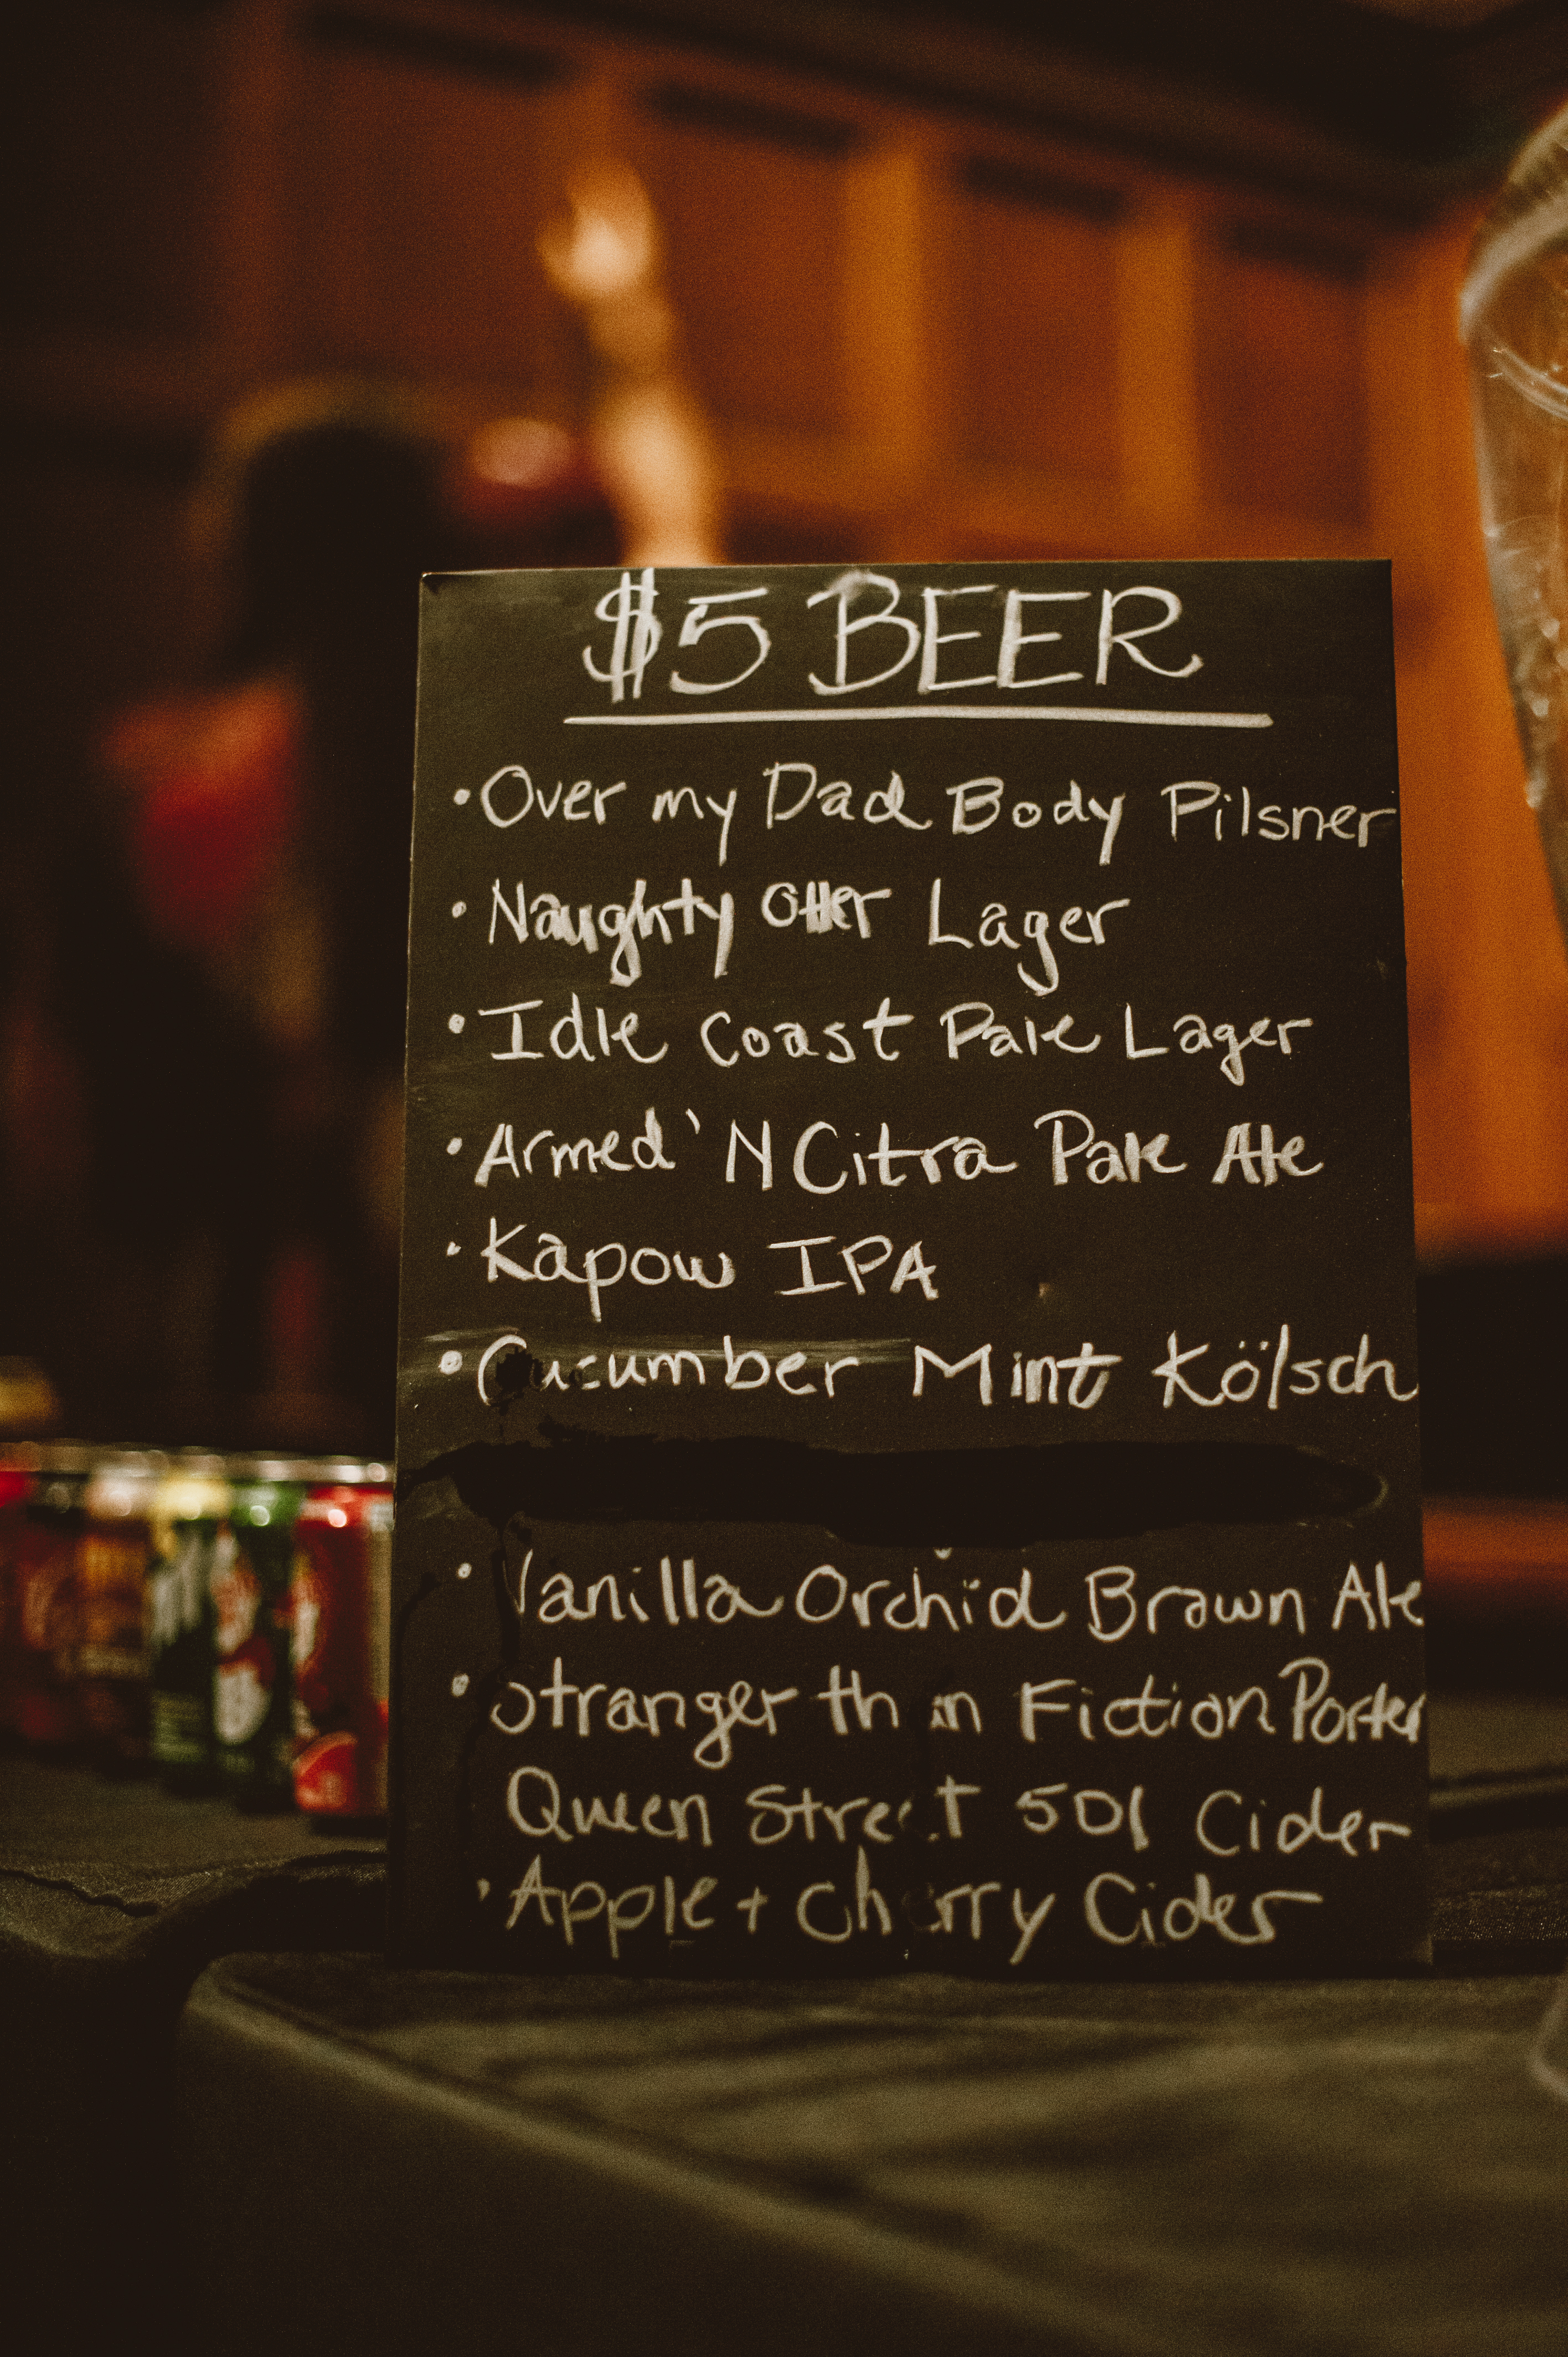 $5 BEER
• Over my Dad Body Pilsner
• Naughty Otter Lager
• Idle Coast Pale Lager
• Armed 'N Citra Pale Ale
• Kapow IPA
• Cucumber Mint Kölsch
• Vanilla Orchid Brown Ale
• Stranger than Fiction Porter
Queen Street 501 Cider
• Apple + Cherry Cider